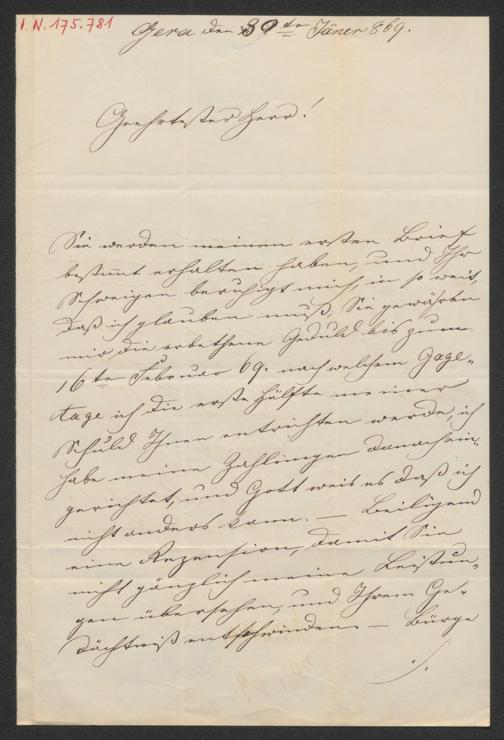 I. N. 175.781
Gera den 30te Jäner 869.
Geehrtester Herr!
Sie werden meinen ersten Brief
bestimmt erhalten haben, und Ihr
Schweigen beruhigt mich, in so weit,
daß ich glauben muß, Sie gewähren
mir die erbethene Geduld bis zum
16ten Februar 69. nach welchem Gage-
tage ich die erste Hälfte meiner
Schuld Ihnen entrichten werde, ich
habe meine Zahlungen darnach ein-
gerichtet, und Gott weis es daß ich
nicht anders kann. — Beiliegend
eine Rezension, damit Sie
nicht gänzlich meine Leistun-
gen übersehen, und Ihrem Ge-
dächtniß entschwinden — Bürge